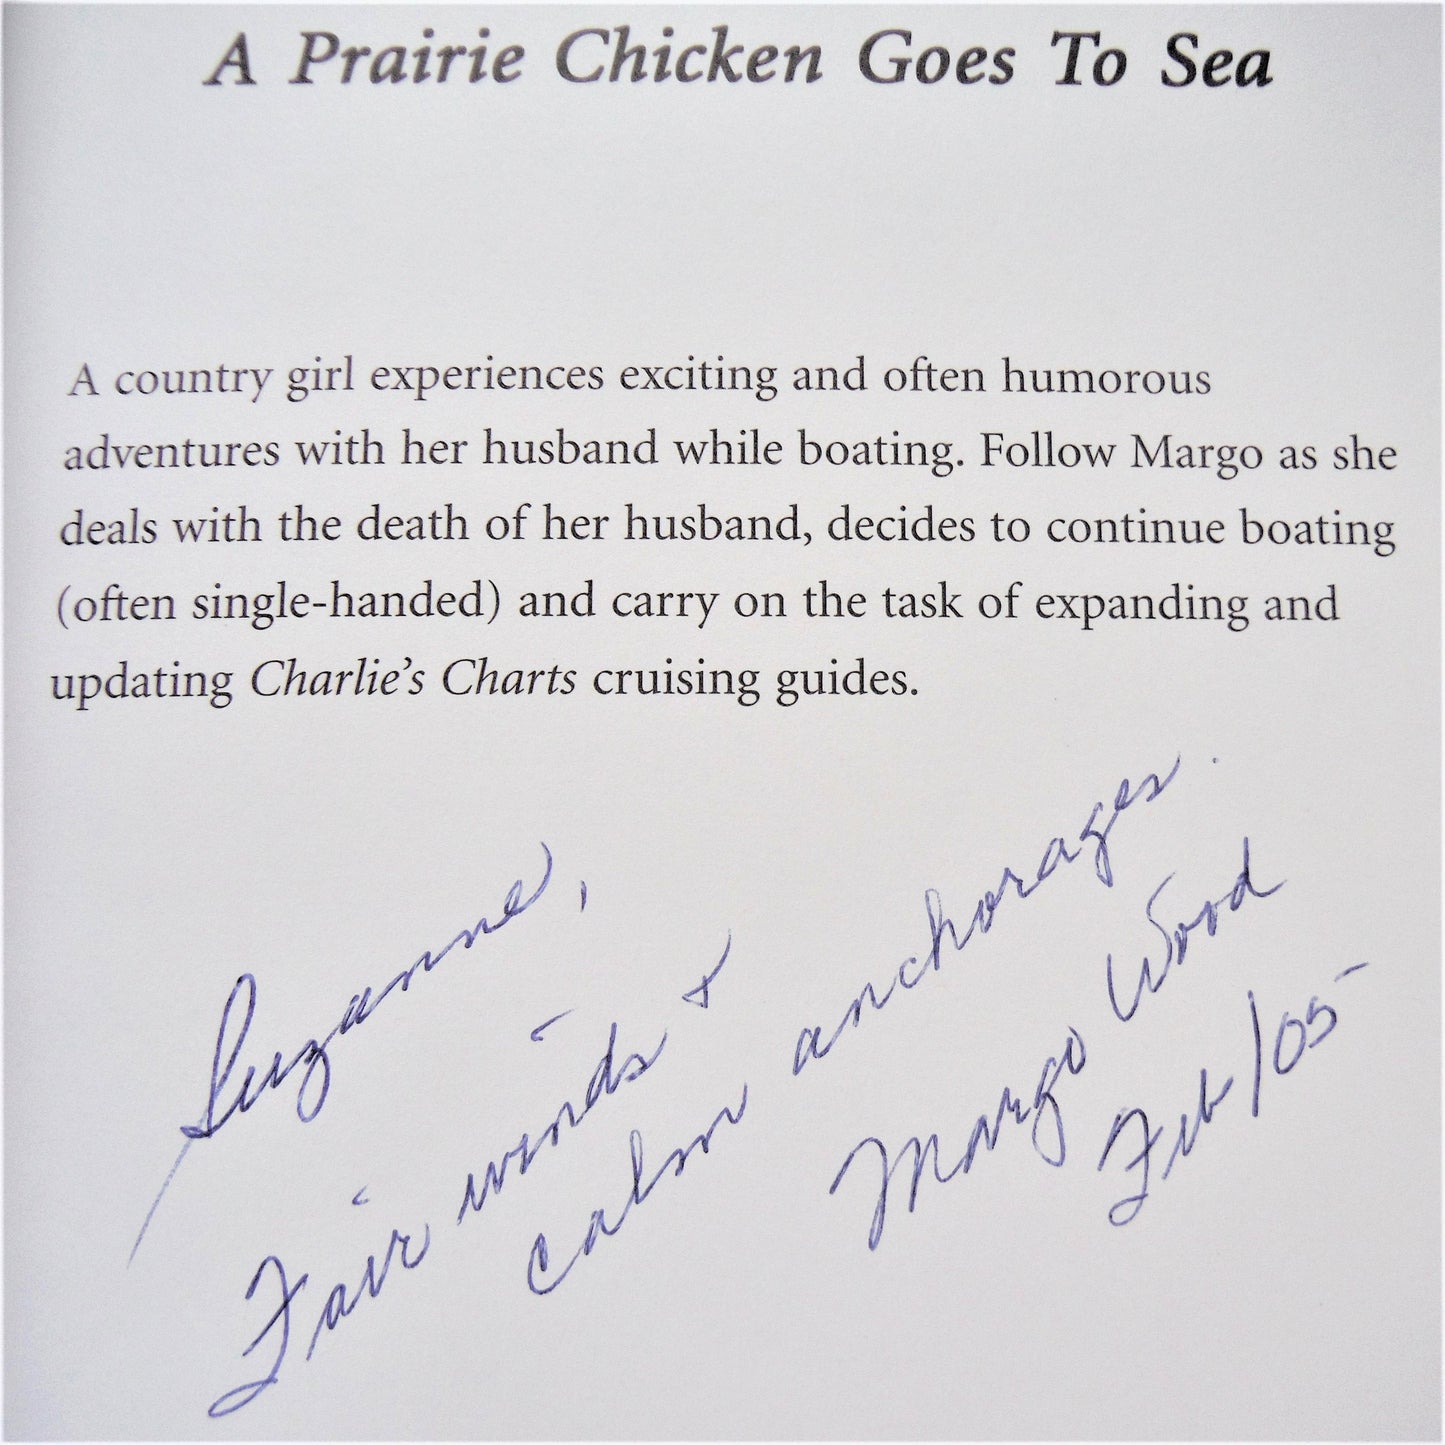 A Prairie Chicken Goes To Sea
A country girl experiences exciting and often humorous
adventures with her husband while boating. Follow Margo as she
deals with the death of her husband, decides to continue boating
(often single-handed) and carry on the task of expanding and
updating Charlie's Charts cruising guides.
Suzanne,
Fair winds &
calm anchorages.
Margo Wood
Feb/05